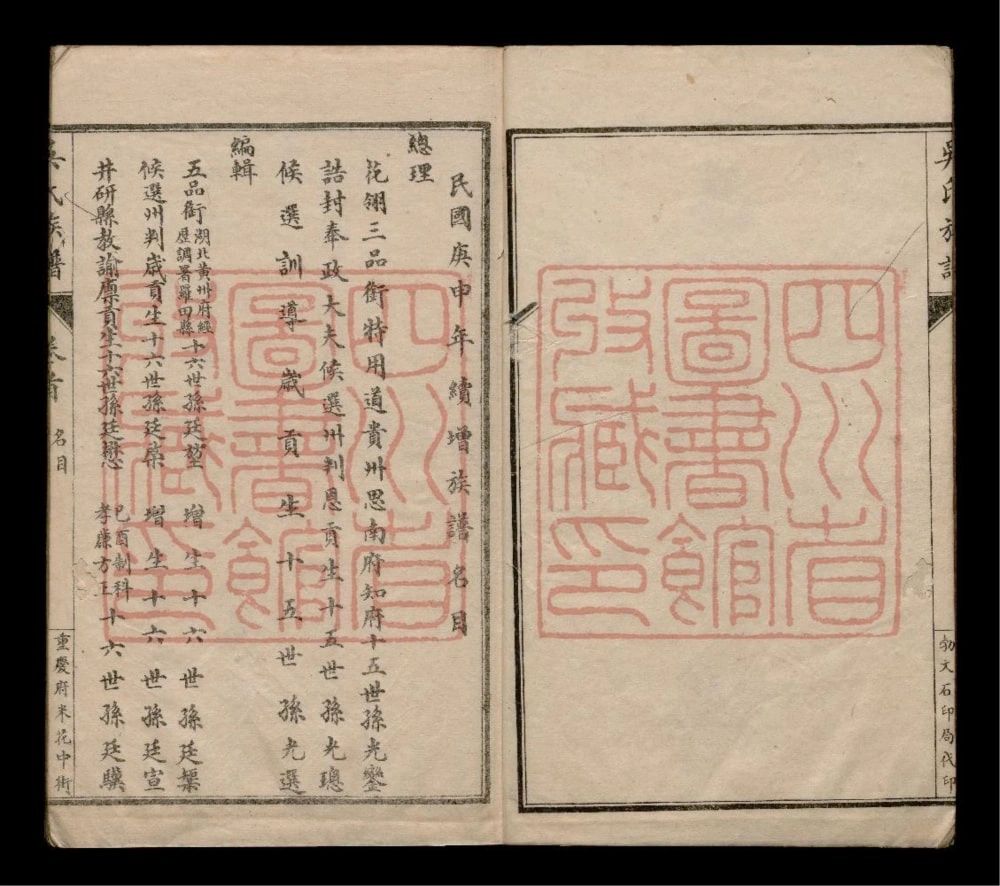 吳氏族譜
文石印局代印
四川省
圖書館
收藏印
民國庚申年續增族譜名目
總理
花翎三品銜特用道貴州思南府知府十五世孫光鑾
誥封奉政大夫候選州判恩貢生十五世孫光璁
候選訓導歲貢生十五世孫光選
編輯
五品銜湖北黃州府經歷調署羅田縣十六世孫廷堃 增生十六世孫廷榘
候選州判歲貢生十六世孫廷 增生十六世孫廷宣
井研縣教諭廩貢生十六世孫廷懋 己酉制科孝廉方正十六世孫廷驥
吳氏族譜 卷首 名目 重慶府米花中街